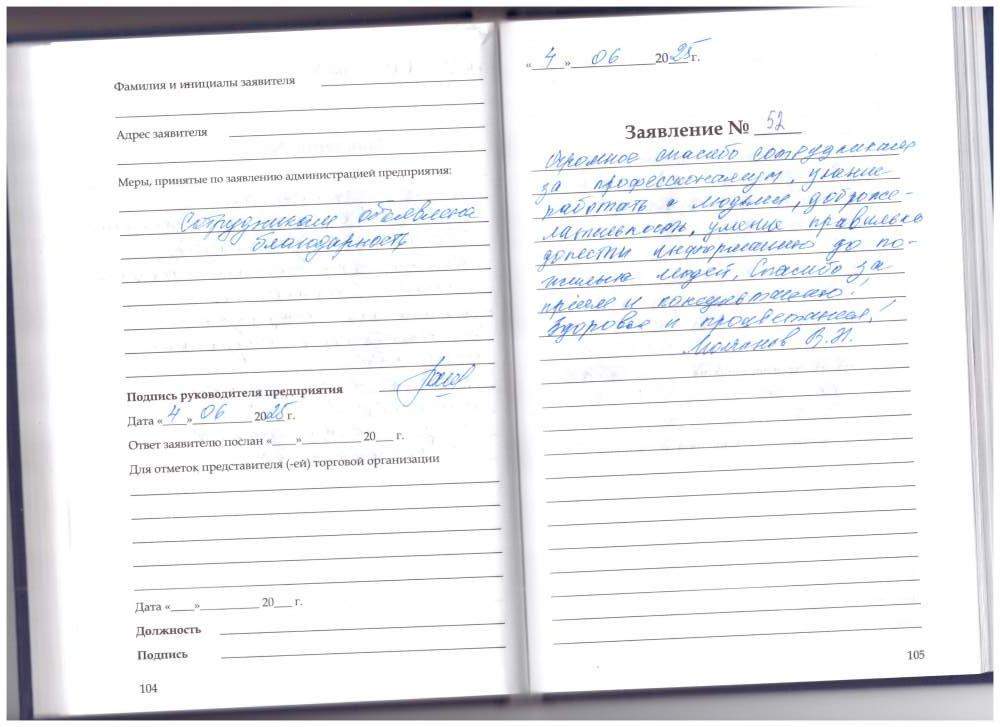 Фамилия и инициалы заявителя
Адрес заявителя
Меры, принятые по заявлению администрацией предприятия:
Сотрудникам объявлена
благодарность
Подпись руководителя предприятия
Дата «4» 06 2025 г.
Ответ заявителю послан «____»__________ 20___ г.
Для отметок представителя (-ей) торговой организации
Дата «____»__________ 20___ г.
Должность
Подпись
104
«4» 06 2025 г.
Заявление № 52
Огромное спасибо сотрудникам
за профессионализм, умение
работать с людьми, доброже-
лательность, умение правильно
донести информацию до по-
жилых людей. Спасибо за
прием и консультацию!
Здоровья и процветания!
Молчанов В.Н.
105